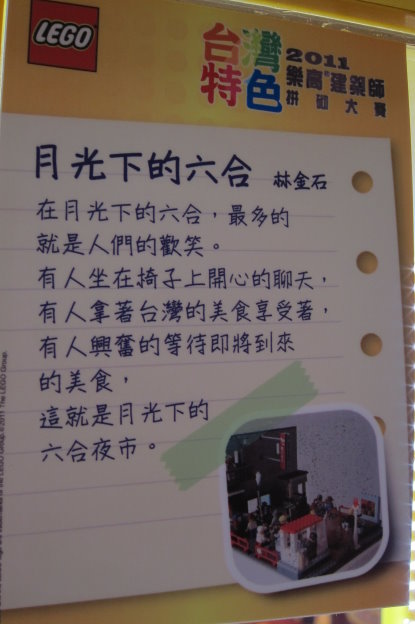 LEGO
台灣特色
2011
樂高®建築師
拼砌大賽
月光下的六合 林金石
在月光下的六合，最多的
就是人們的歡笑。
有人坐在椅子上開心的聊天，
有人拿著台灣的美食享受著，
有人興奮的等待即將到來
的美食，
這就是月光下的
六合夜市。